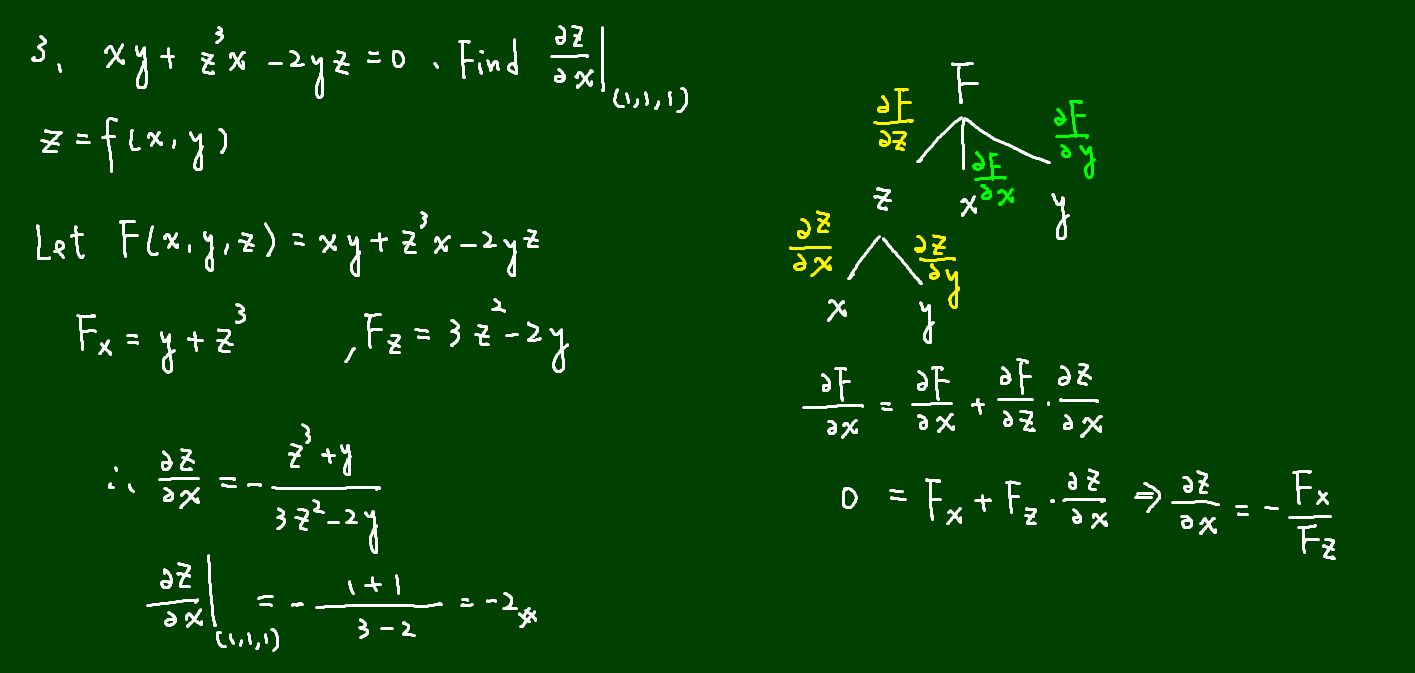 3. xy + z³x - 2yz = 0 . Find ∂z/∂x|(1,1,1)
z = f(x, y)
Let F(x, y, z) = xy + z³x - 2yz
Fx = y + z³ , Fz = 3z² - 2y
∴ ∂z/∂x = - (z³ + y)/(3z² - 2y)
∂z/∂x|(1,1,1) = - (1 + 1)/(3 - 2) = -2 ※
F
∂F/∂z ∂F/∂x ∂F/∂y
z x y
∂z/∂x ∂z/∂y
x y
∂F/∂x = ∂F/∂x + ∂F/∂z · ∂z/∂x
0 = Fx + Fz · ∂z/∂x ⇒ ∂z/∂x = - Fx/Fz